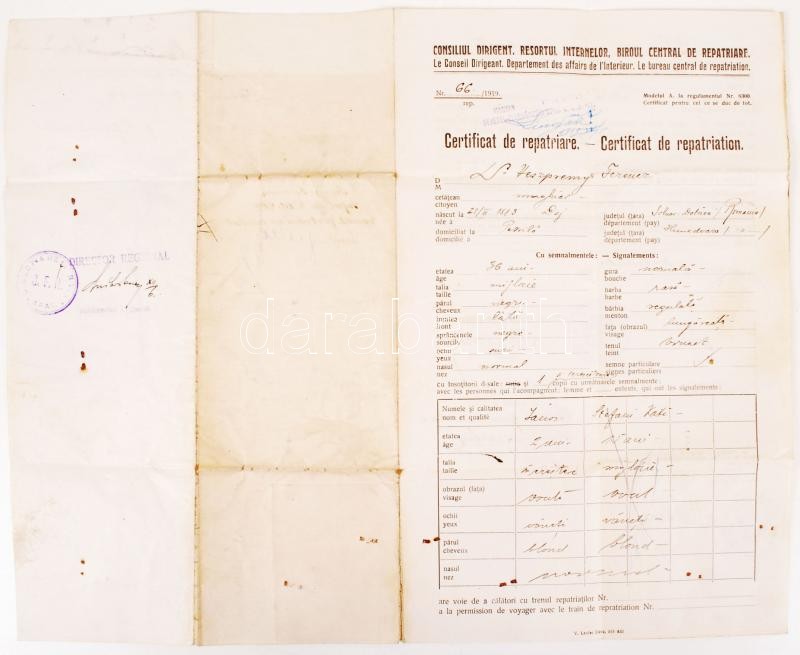 CONSILIUL DIRIGENT. RESORTUL INTERNELOR, BIROUL CENTRAL DE REPATRIARE.
Le Conseil Dirigeant. Departement des affairs de l'Interieur. Le bureau central de repatriation.
Nr. 66 /1919.
rep.
Modelul A. la regulamentul Nr. 6300
Certificat pentru cei ce se duc de tot.
Certificat de repatriare. — Certificat de repatriation.
D Dr Veszpremy Ferencz
M
cetățean maghiar
citoyen
născut la 1883 Dej județul (țara) Solnoc Dobâca (Romania)
née à département (pay)
domiciliat la județul (țara) Hunedoara
domicilie à département (pay)
Cu semnalmentele: — Signalements:
etatea 36 ani gura normală
âge bouche
talia mijlocie barba rasă
taille barbe
părul negru bărbia regulată
cheveux menton
fruntea lată fața (obrazul) lungăreață
front visage
sprâncenele negre tenul brunet
sourcils teint
ochi semne particulare
yeux signes particuliers
nasul normal
nez
cu însoțitorii d-sale: soția și 1 copii cu următoarele semnalmente:
avec les personnes qui l'acompagnent: femme et enfents, qui ont les signalements:
Numele și calitatea János Stefani Kati
nom et qualité
etatea 2 ani 15 ani
âge
talia mijlocie
taille
obrazul (fața) ovală oval
visage
ochii vineți vineți
yeux
părul blond blond
cheveux
nasul normal
nez
are voie de a călători cu trenul repatriaților Nr.
a la permission de voyager avec le train de repratriation Nr.
DIRECTOR REGIONAL
darabanth